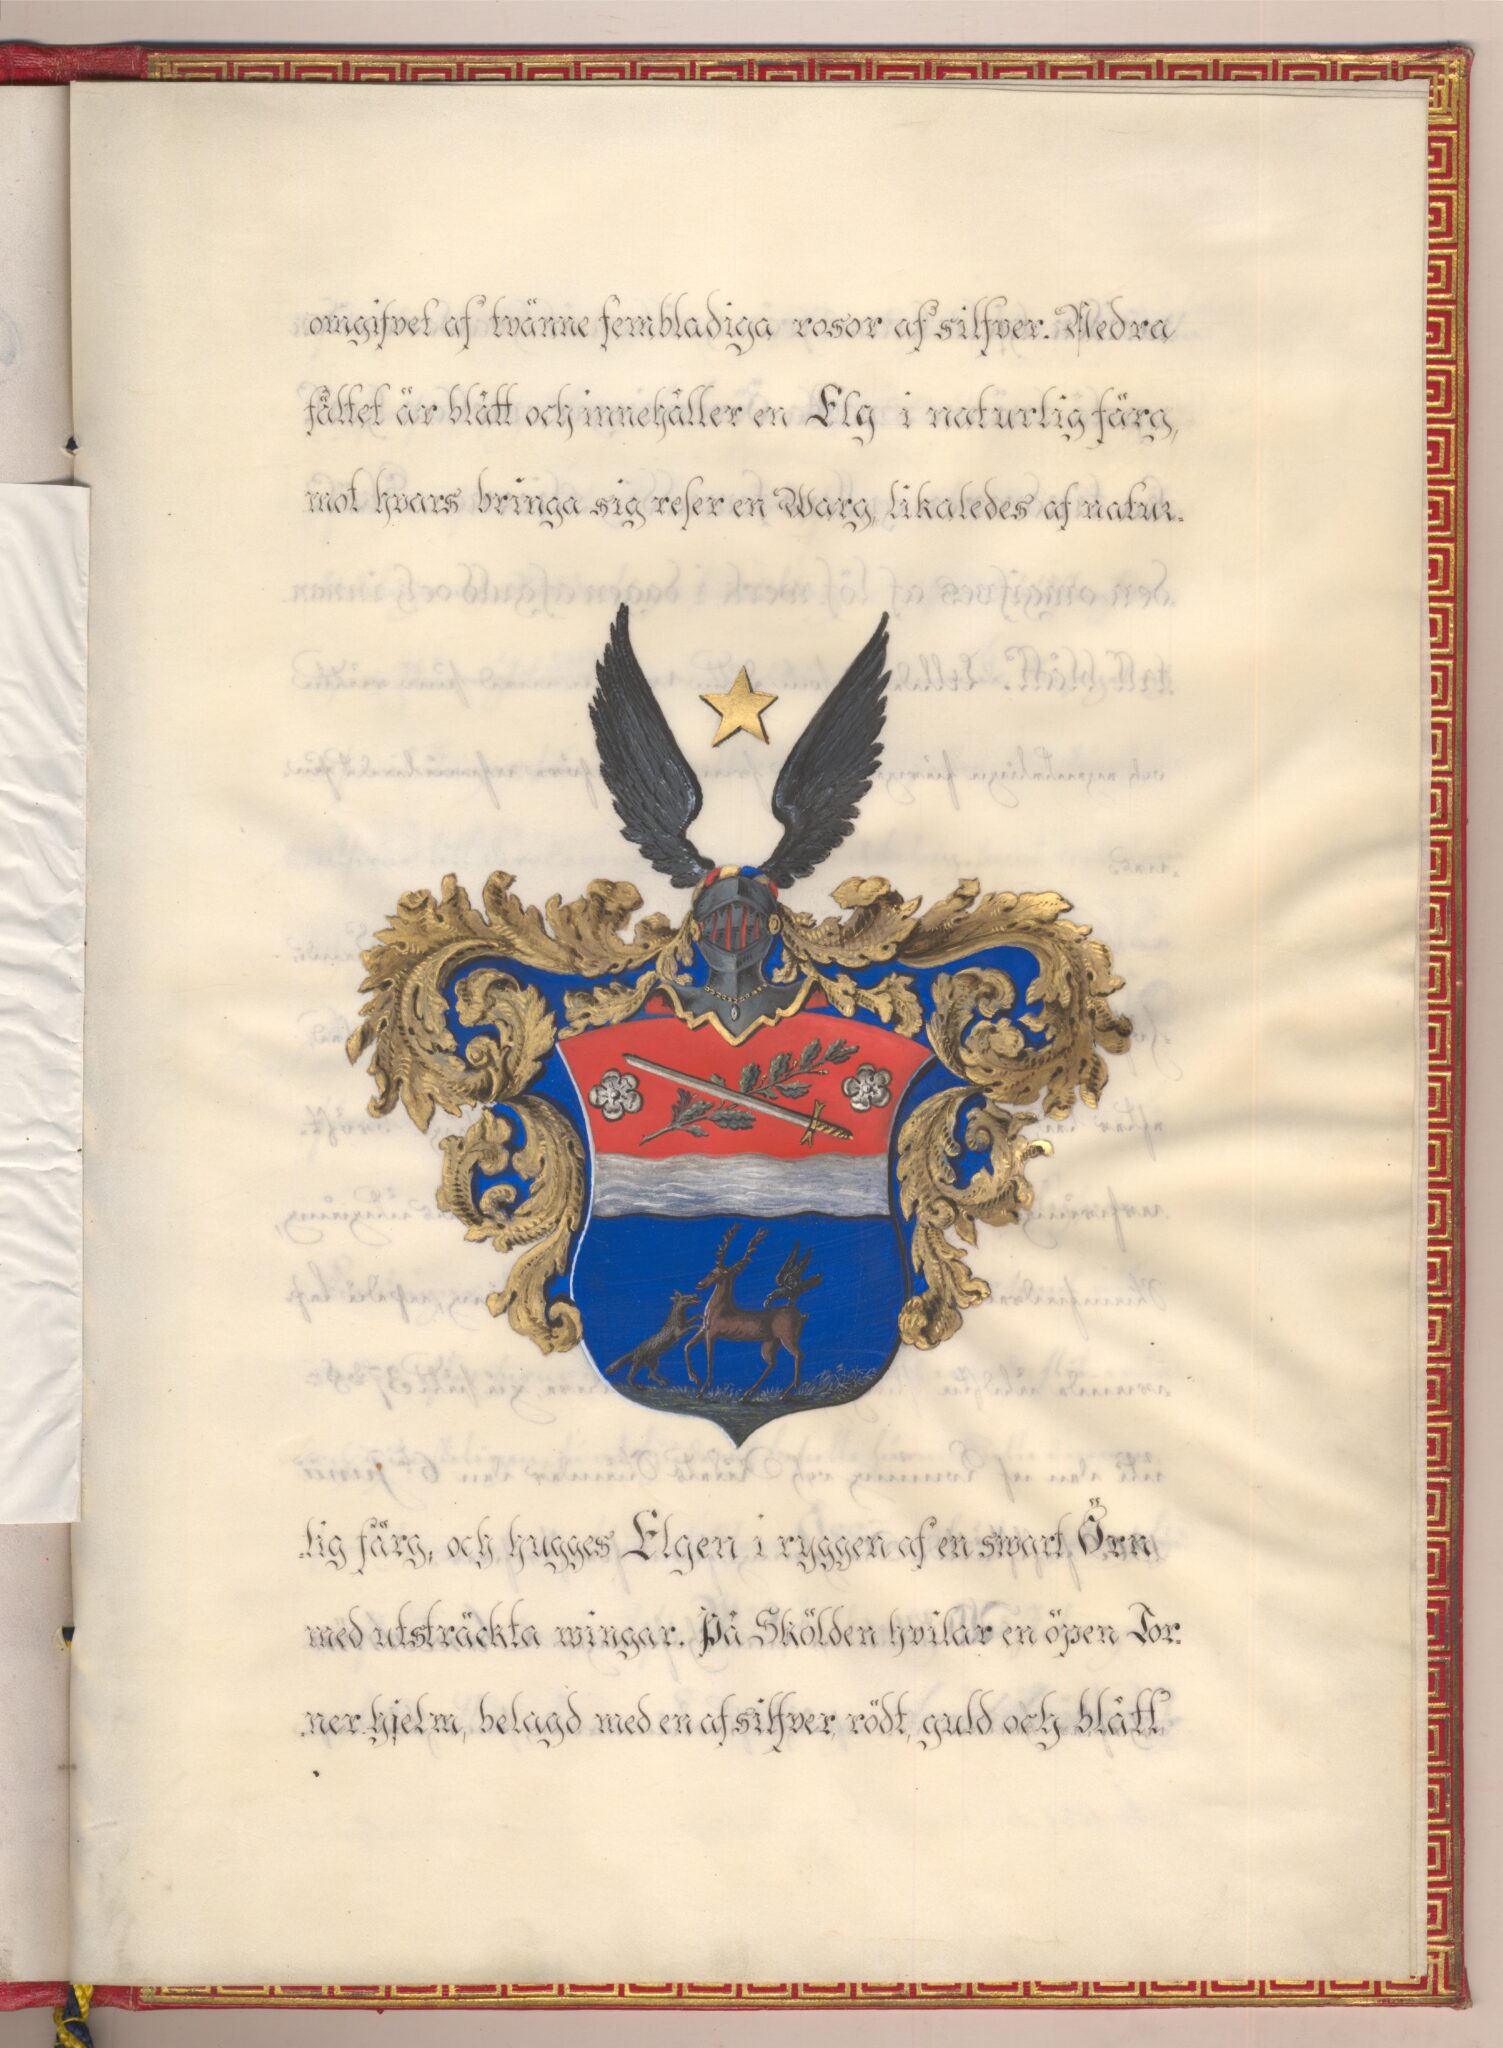 omgifvet af tvänne fembladiga rosor af silfver. Nedra
fältet är blått och innehåller en Elg i naturlig färg,
mot hvars bringa sig reser en Warg, likaledes af natur-
lig färg, och hugges Elgen i ryggen af en swart Örn
med utsträckta wingar. På Skölden hvilar en öpen Tor-
ner hjelm, belagd med en af silfver, rödt, guld och blått